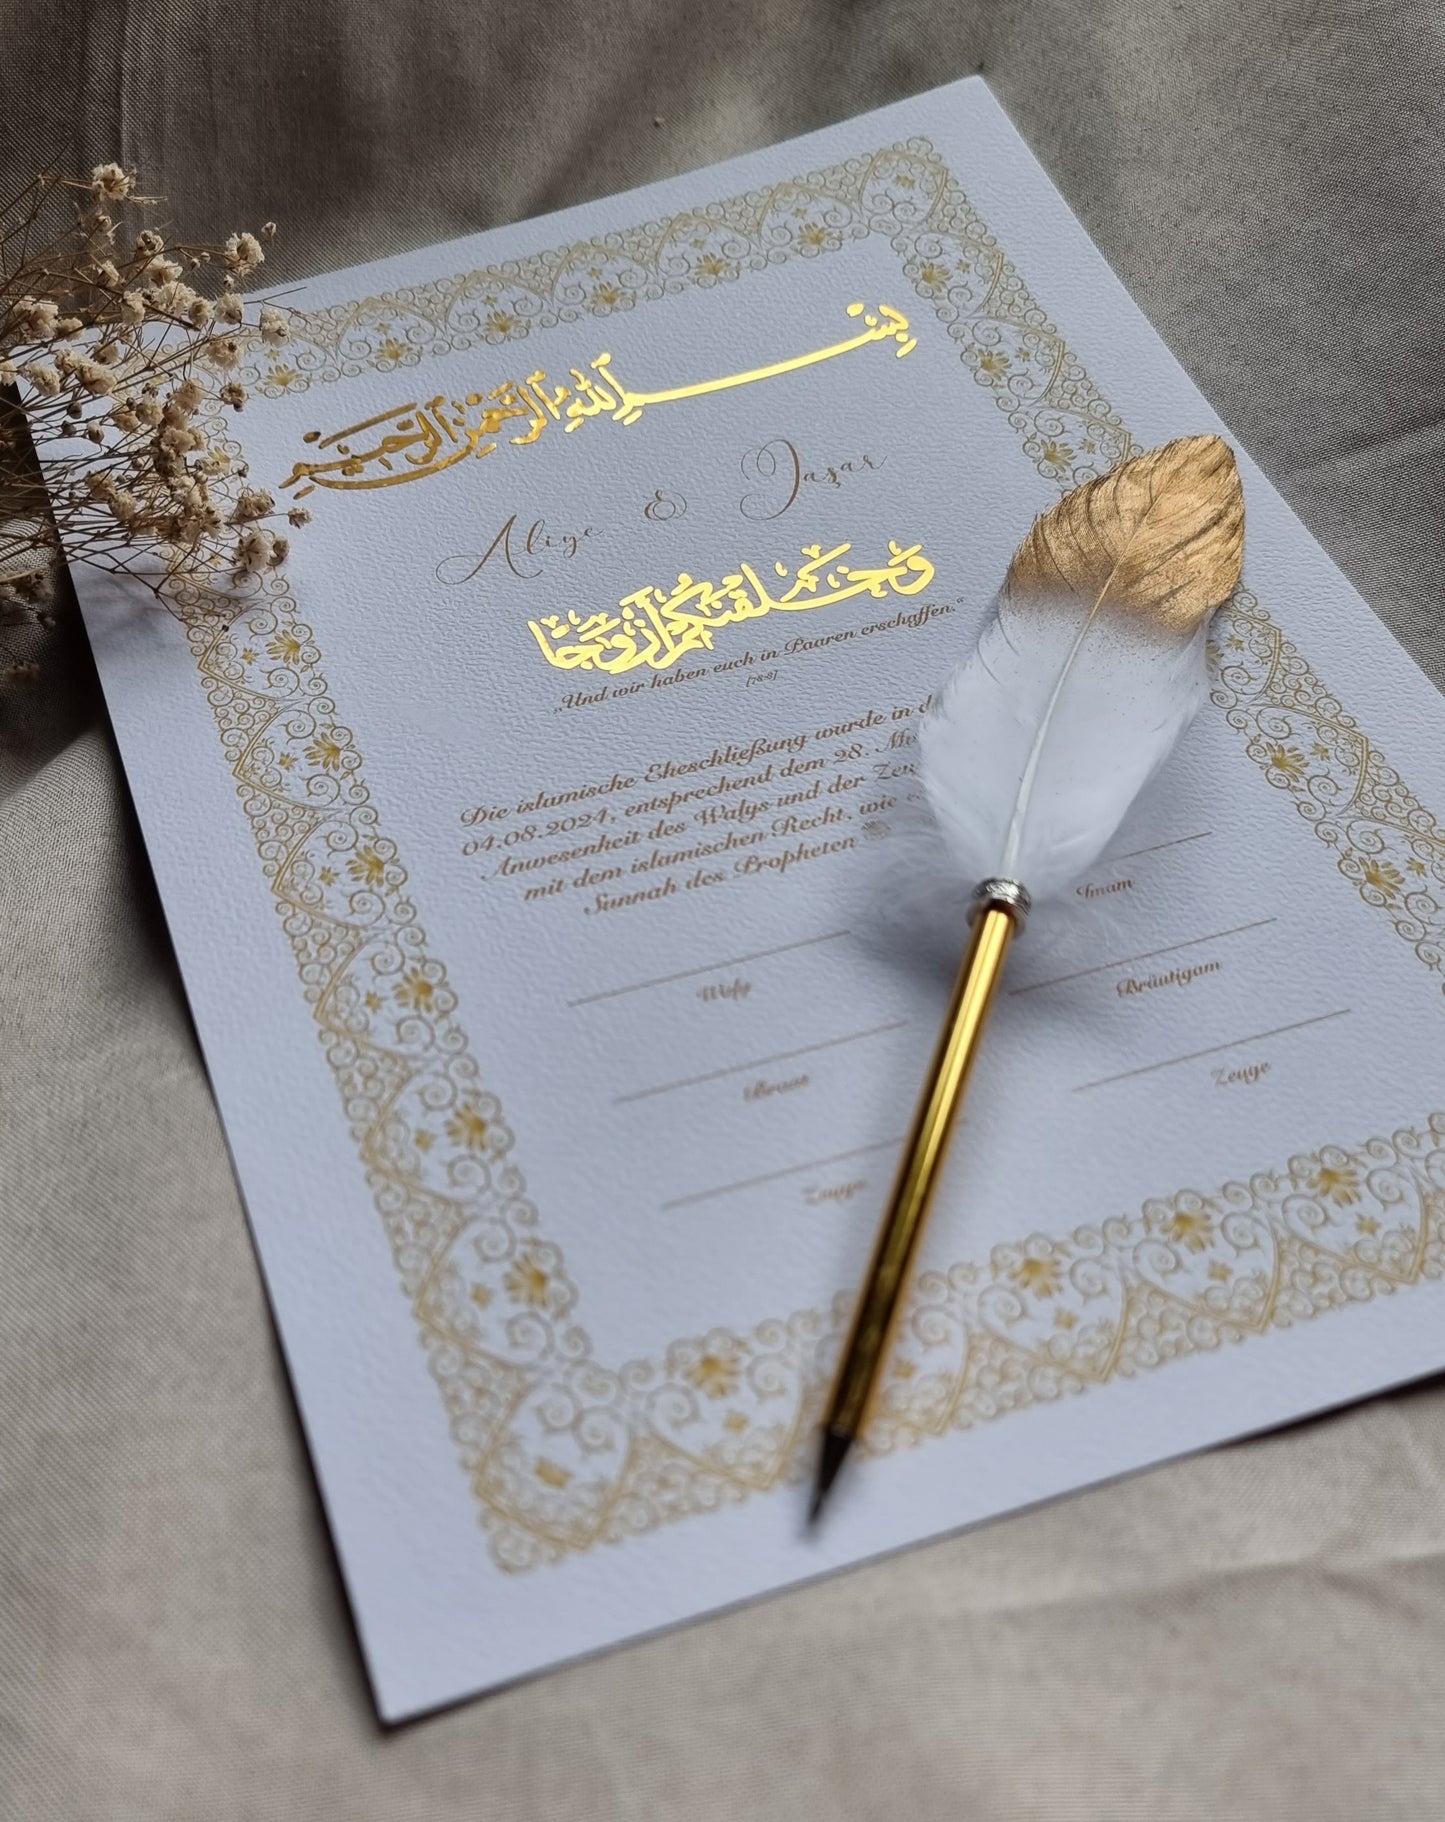 بِسْمِ اللهِ الرَّحْمٰنِ الرَّحِيْمِ
Aliye & Jaşar
وَخَلَقْنَكُمْ أَزْوَجًا
„Und wir haben euch in Paaren erschaffen.“
[78:8]
Die islamische Eheschließung wurde in
04.08.2024, entsprechend dem 28.
Anwesenheit des Walys und der
mit dem islamischen Recht, wie
Sunnah des Propheten
Imam
Waly
Bräutigam
Braut
Zeuge
Zeuge